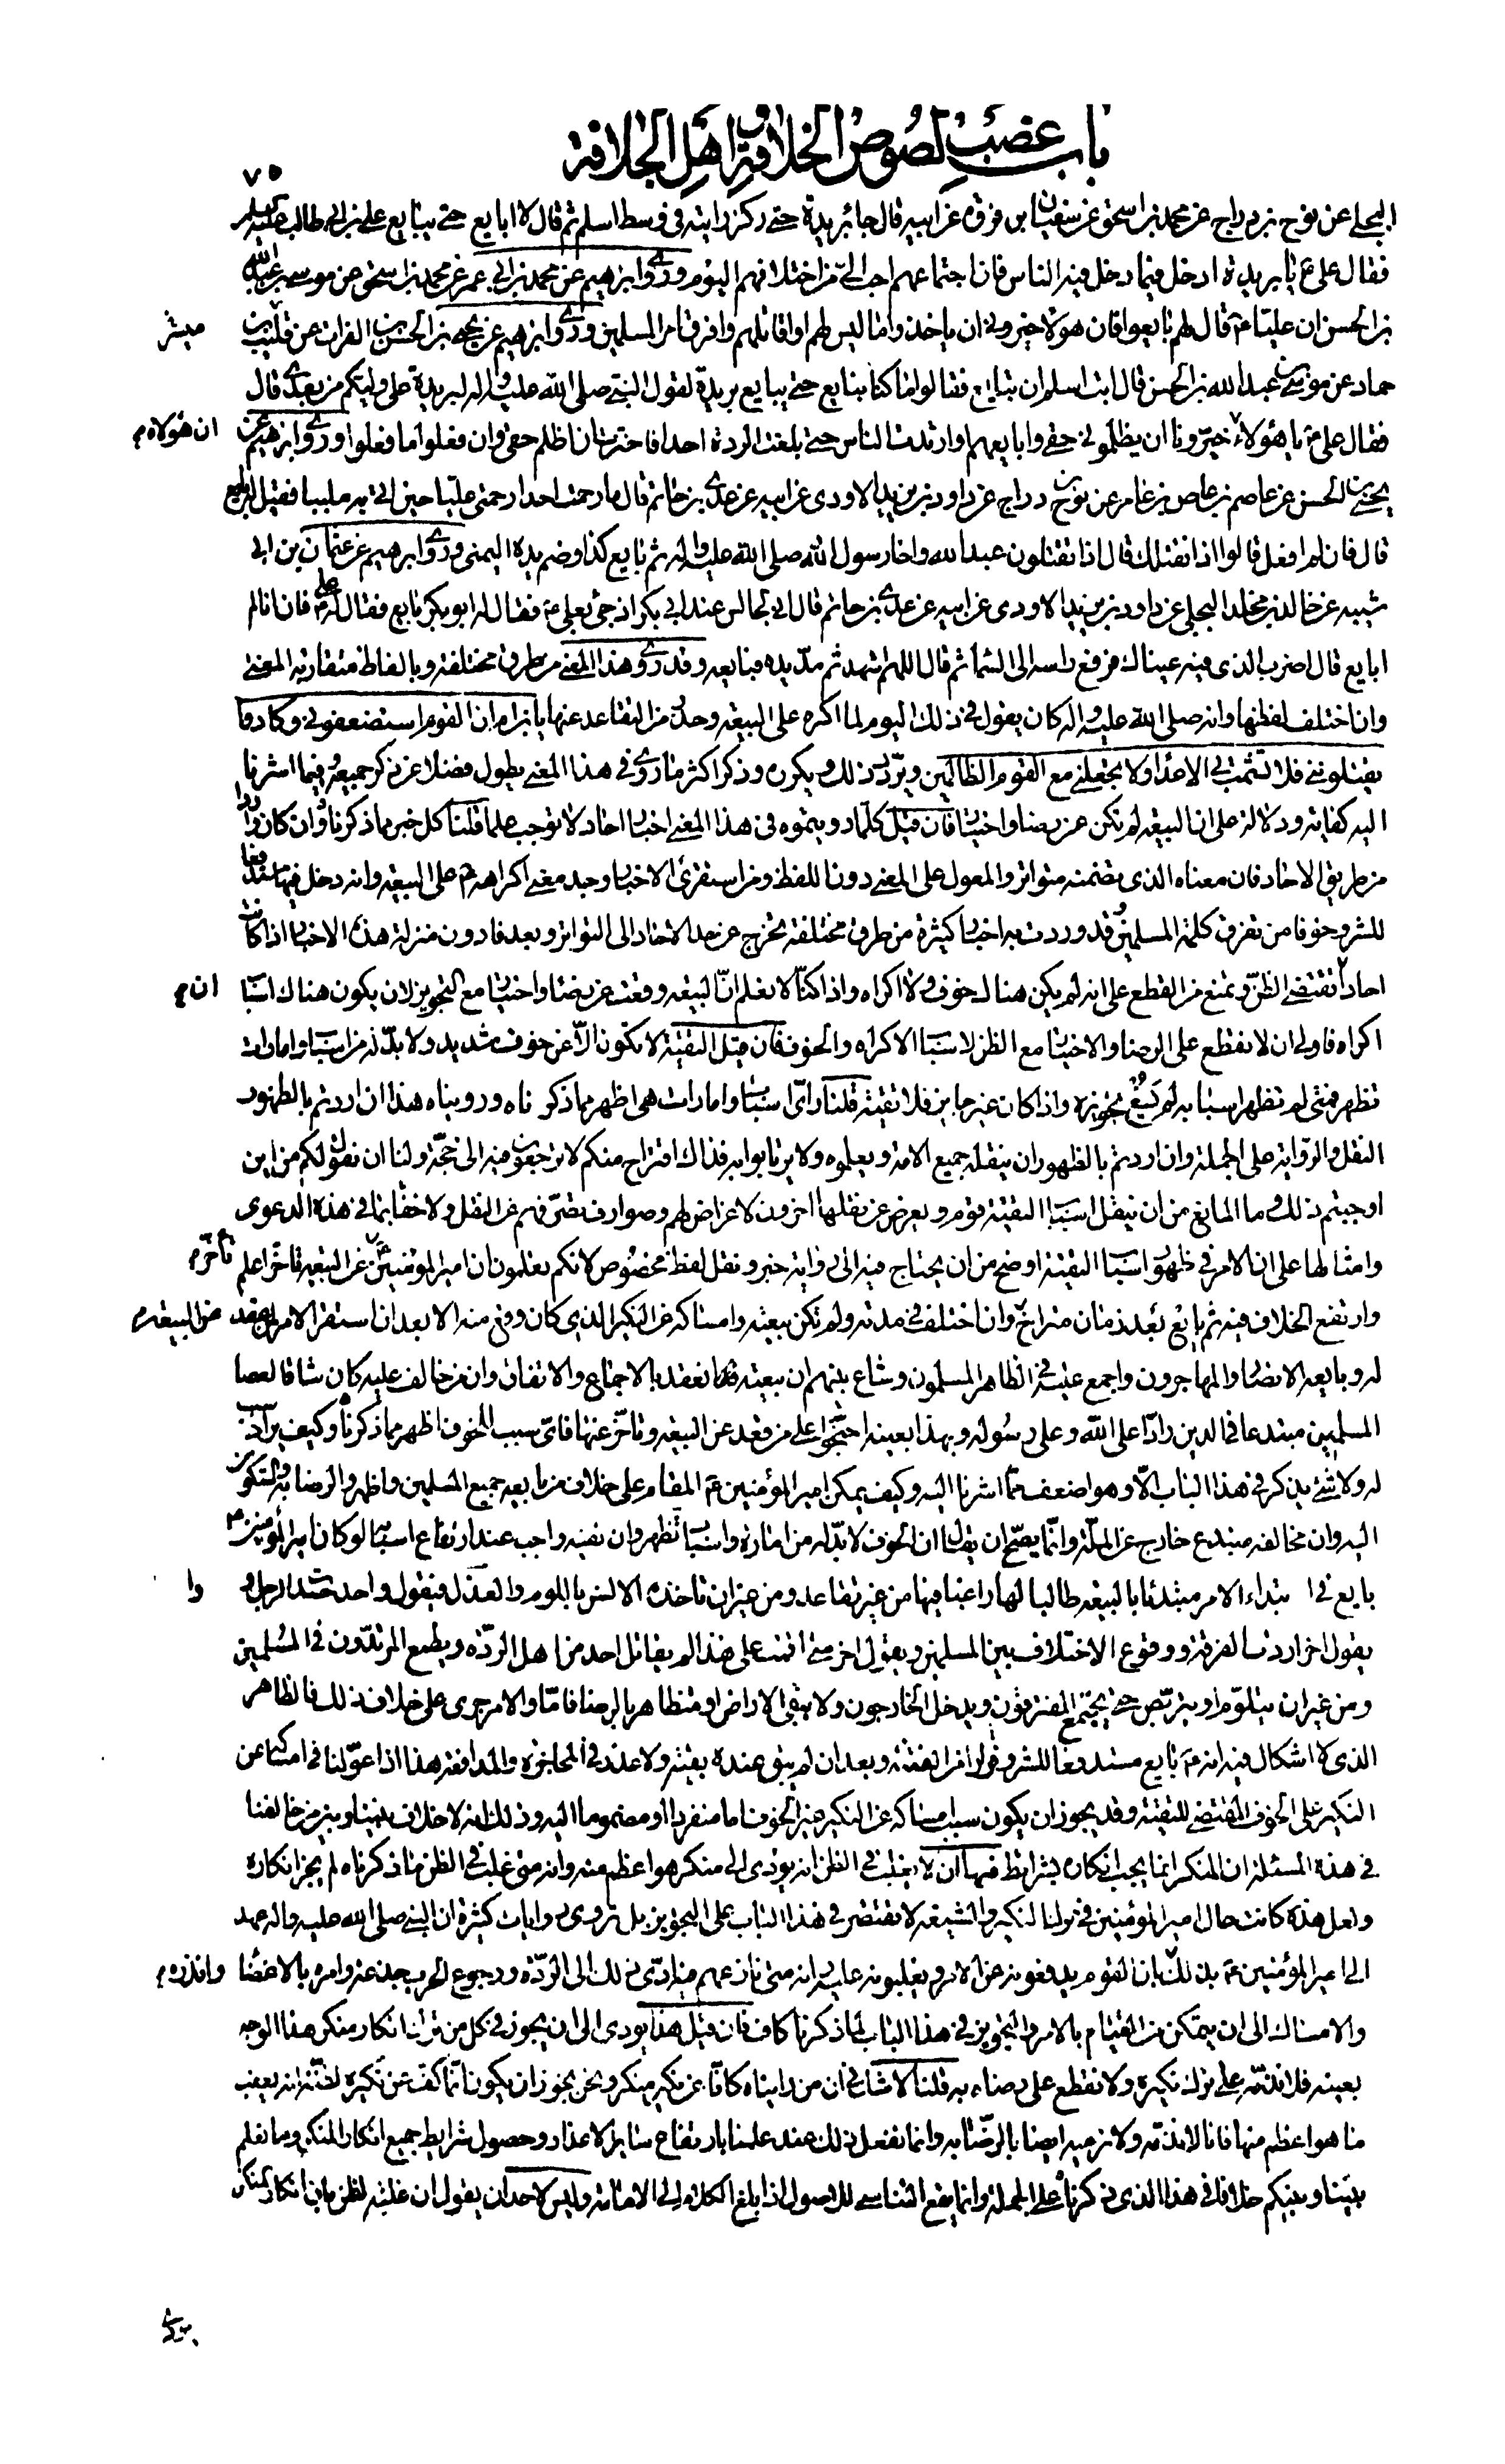 باب غصب لصوص الخلافة واهل الجلافة
٧٥
البجلى عن نوح بن دراج عن محمد بن اسحق عن سفيان بن فروه عن ابيه قال جاء بريدة حتى ركز رايته فى وسط اسلم ثم قال لا ابايع حتى يبايع على بن ابى طالب عليه السلم
فقال على ع يا بريدة ادخل فيما دخل فيه الناس فان اجتماعهم احب الىّ من اختلافهم اليوم وروى ابرهيم عن محمد بن ابى عمر عن محمد بن اسحق عن موسى بن عبدالله
بن الحسن ان عليا ع قال لهم بايعوا فان هولاء خيرونى ان ياخذوا ما ليس لهم او اقاتلهم وافرق امر المسلمين وروى ابرهيم عن يحيى بن الحسن بن الفرات عن قليب بن
ميسر
حماد عن موسى بن عبدالله بن الحسن قال ابت اسلم ان تبايع فقالوا ما كنا نبايع حتى يبايع بريدة لقول النبى صلى الله عليه واله لبريدة على وليكم من بعدى قال
فقال على ع يا هؤلاء خيرونا ان يظلمونى حقى وابايعهم وارتدت الناس حتى بلغت الردة احدا فاخترت ان اظلم حقى وان فعلوا ما فعلوا وروى ابرهيم عن
ان هؤلاء م
يحيى بن الحسن عن عاصم بن عامر عن نوح بن دراج عن داود بن يزيد الاودى عن ابيه عن عدى بن حاتم قال ما رحمت احدا رحمتى عليا حين اتى به ملببا فقيل له بايع
قال فان لم افعل قالوا اذا نقتلك قال اذا تقتلون عبدالله واخا رسول الله صلى الله عليه واله ثم بايع كذا وضم يده اليمنى وروى ابرهيم عن عثمان بن ابى
شيبه عن خالد بن مخلد البجلى عن داود بن يزيد الاودى عن ابيه عن عدى بن حاتم قال انى لجالس عند ابى بكر اذ جئ بعلى ع فقال له ابو بكر بايع فقال له على ع فان انا لم
ابايع قال اضرب الذى فيه عيناك فرفع راسه الى السماء ثم قال اللهم اشهد ثم مد يده فبايعه وقد روى هذا المعنى من طرق مختلفة وبالفاظ متقاربة المعنى
وان اختلف لفظها وانه صلى الله عليه واله كان يقول فى ذلك اليوم لما اكره على البيعه وحذر من التقاعد عنها يا بن ام ان القوم استضعفونى وكادوا
يقتلوننى فلا تشمت بى الاعداء ولا تجعلنى مع القوم الظالمين ويردد ذلك ويكرره وذكر اكثر ما روى فى هذا المعنى يطول فضلا عن ذكر جميعه وفيما اشرنا
اليه كفاية ودلالة على ان البيعه لم تكن عن رضا واختيار فان قيل كلما رويتموه فى هذا المعنى اخبار احاد لا توجب علما قلنا كل خبر مما ذكرناه وان كان واردا
من طريق الاحاد فان معناه الذى تضمنه متواتر والمعول على المعنى دون اللفظ ومن استقرئ الاخبار وجد معنى اكراهه ع على البيعه وانه دخل فيها مستدفعا
للشر وخوفا من تفرق كلمة المسلمين وقد وردت به اخبار كثيرة من طرق مختلفة تخرج عن حد الاحاد الى التواتر وبعد فادون منزلة هذه الاخبار اذا كانت
احادا ان تقتضى الظن وتمنع من القطع على انه لم يكن هناك خوف ولا اكراه واذا كنا لا نعلم ان البيعه وقعت عن رضا واختيار مع التجويز لان يكون هناك اسباب
ان م
اكراه فاولى ان لا نقطع على الرضا والاختيار مع الظن لاسباب الاكراه والخوف فان قيل التقية لا تكون الا عن خوف شديد ولا بد له من اسباب وامارات
تظهر فمتى لم تظهر اسبابه لم يسغ تجويزه واذا كان غير جايز فلا تقية قلنا واى اسباب وامارات هى اظهر مما ذكرناه ورويناه هذا ان اردتم بالظهور
النقل والرواية على الجملة وان اردتم بالظهور ان ينقله جميع الامة ويعلموه ولا يرتابوا به فذاك اقتراح منكم لا ترجعون فيه الى حجة ولنا ان نقول لكم من اين
اوجبتم ذلك وما المانع من ان ينقل اسباب التقية قوم ويعرض عن نقلها اخرون لاغراض لهم وصوارف تصرفهم عن النقل ولا خفاء بما فى هذه الدعوى
وامثالها على ان الامر فى ظهور اسباب التقية اوضح من ان يحتاج فيه الى رواية خبر ونقل لفظ مخصوص لانكم تعلمون ان امير المؤمنين ع تاخر عن البيعه تاخرا علم
تاخر م
وارتفع الخلاف فيه ثم بايع بعد زمان متراخ وان اختلف فى مدته ولم تكن بيعته وامساكه عن النكير الذى كان وقع منه الا بعد ان استقر الامر لمن عقد
عن البيعه م
له وبايعه الانصار والمهاجرون واجمع عليه فى الظاهر المسلمون وشاع بينهم ان بيعته انعقد بالاجماع والاتفاق وان من خالف عليه كان شاقا لعصا
المسلمين مبتدعا فى الدين رادا على الله وعلى رسوله وبهذا بعينه احتجوا على من قعد عن البيعه وتاخر عنها فاى سبب للخوف اظهر مما ذكرناه وكيف يراد سبب
له ولا شئ يذكر فى هذا الباب الا وهو اضعف مما اشرنا اليه وكيف يمكن امير المؤمنين ع المقام على خلاف من بايعه جميع المسلمين واظهروا الرضا به والسكون
اليه وان مخالفه مبتدع خارج عن الملة وانما يصح ان يقال ان الخوف لا بد له من امارة واسباب تظهر وان نفيه واجب عند ارتفاع اسبابه لو كان امير المؤمنين ع
بايع فى ابتداء الامر مبتدئا بالبيعه طالبا لها راغبا فيها من غير تقاعد ومن غير ان تاخذه الالسن باللوم والعذل فيقول واحد حسدت الرجل و
وا
يقول اخر اردت الفرقة ووقوع الاختلاف بين المسلمين ويقول اخر متى اقمت على هذا لم يقاتل احد من اهل الردة ويطمع المرتدون فى المسلمين
ومن غير ان يتلوم او يتربص حتى يجتمع المتفرقون ويدخل الخارجون ولا يبقى الا راض او متظاهر بالرضا فاما والامر جرى على خلاف ذلك فالظاهر
الذى لا اشكال فيه انه ع بايع مستدفعا للشر وفرارا من الفتنة وبعد ان لم يبق عنده بقية ولا عذر فى المحاجزة والمدافعة هذا اذا عولنا فى امساكه عن
النكير على الخوف المقتضى للتقية وقد يجوز ان يكون سبب امساكه عن النكير غير الخوف اما منفردا او مضموما اليه وذلك انه لا خلاف بيننا وبين من خالفنا
فى هذه المسئلة ان المنكر انما يجب انكاره بشرايط فيها ان لا يغلب فى الظن انه يؤدى الى منكر هو اعظم منه وانه متى غلب فى الظن ما ذكرناه لم يجز انكاره
ولعل هذه كانت حال امير المؤمنين فى ترك النكير والشيعه لا تقتصر فى هذا الباب على التجويز بل تروى روايات كثيرة ان النبى صلى الله عليه واله عهد
الى امير المؤمنين ع بذلك بان القوم يدفعونه عن الامر ويغلبونه عليه وانه متى نازعهم فيه ادى ذلك الى الردة ورجوع الحرب جذعة وامره بالاغضاء
وانذره م
والامساك الى ان يتمكن من القيام بالامر والتجويز فى هذا الباب لما ذكرنا كاف فان قيل هذا يؤدى الى ان يجوز فى كل من ترك انكار منكر هذا الوجه
بعينه فلا نذمه على ترك نكيره ولا نقطع على رضاه به قلنا لا شك فى ان من رايناه كافا عن نكير منكر ونحن نجوز ان يكون انما كف عن نكيره لظنه انه يعقب
ما هو اعظم منها فانا لا نذمه ولا نرميه ايضا بالرضا به وانما نفعل ذلك عند علمنا بارتفاع ساير الاعذار وحصول شرايط جميع انكار المنكر وما نعلم
بيننا وبينكم خلافا فى هذا الذى ذكرناه على الجملة وانما يقع التناسى للاصول اذا بلغ الكلام الى الامامة وليس لاحد ان يقول ان غلبة الظن بان انكار المنكر